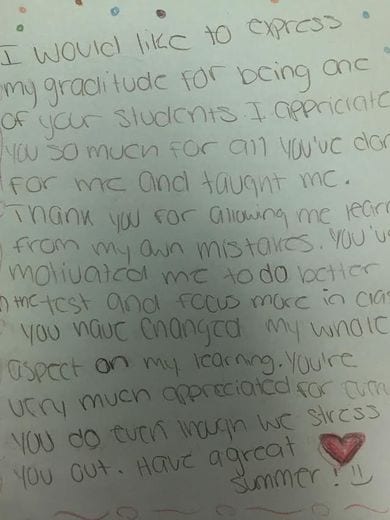 I would like to express
my graditude for being one
of your students. I appriciate
you so much for all you've don
for me and taught me.
Thank you for allowing me learn
from my own mistakes. You've
motivated me to do better
on the test and focus more in clas
you have changed my whole
aspect on my learning. You're
very much appreciated for every
you do even though we stress
you out. Have a great
summer! :)